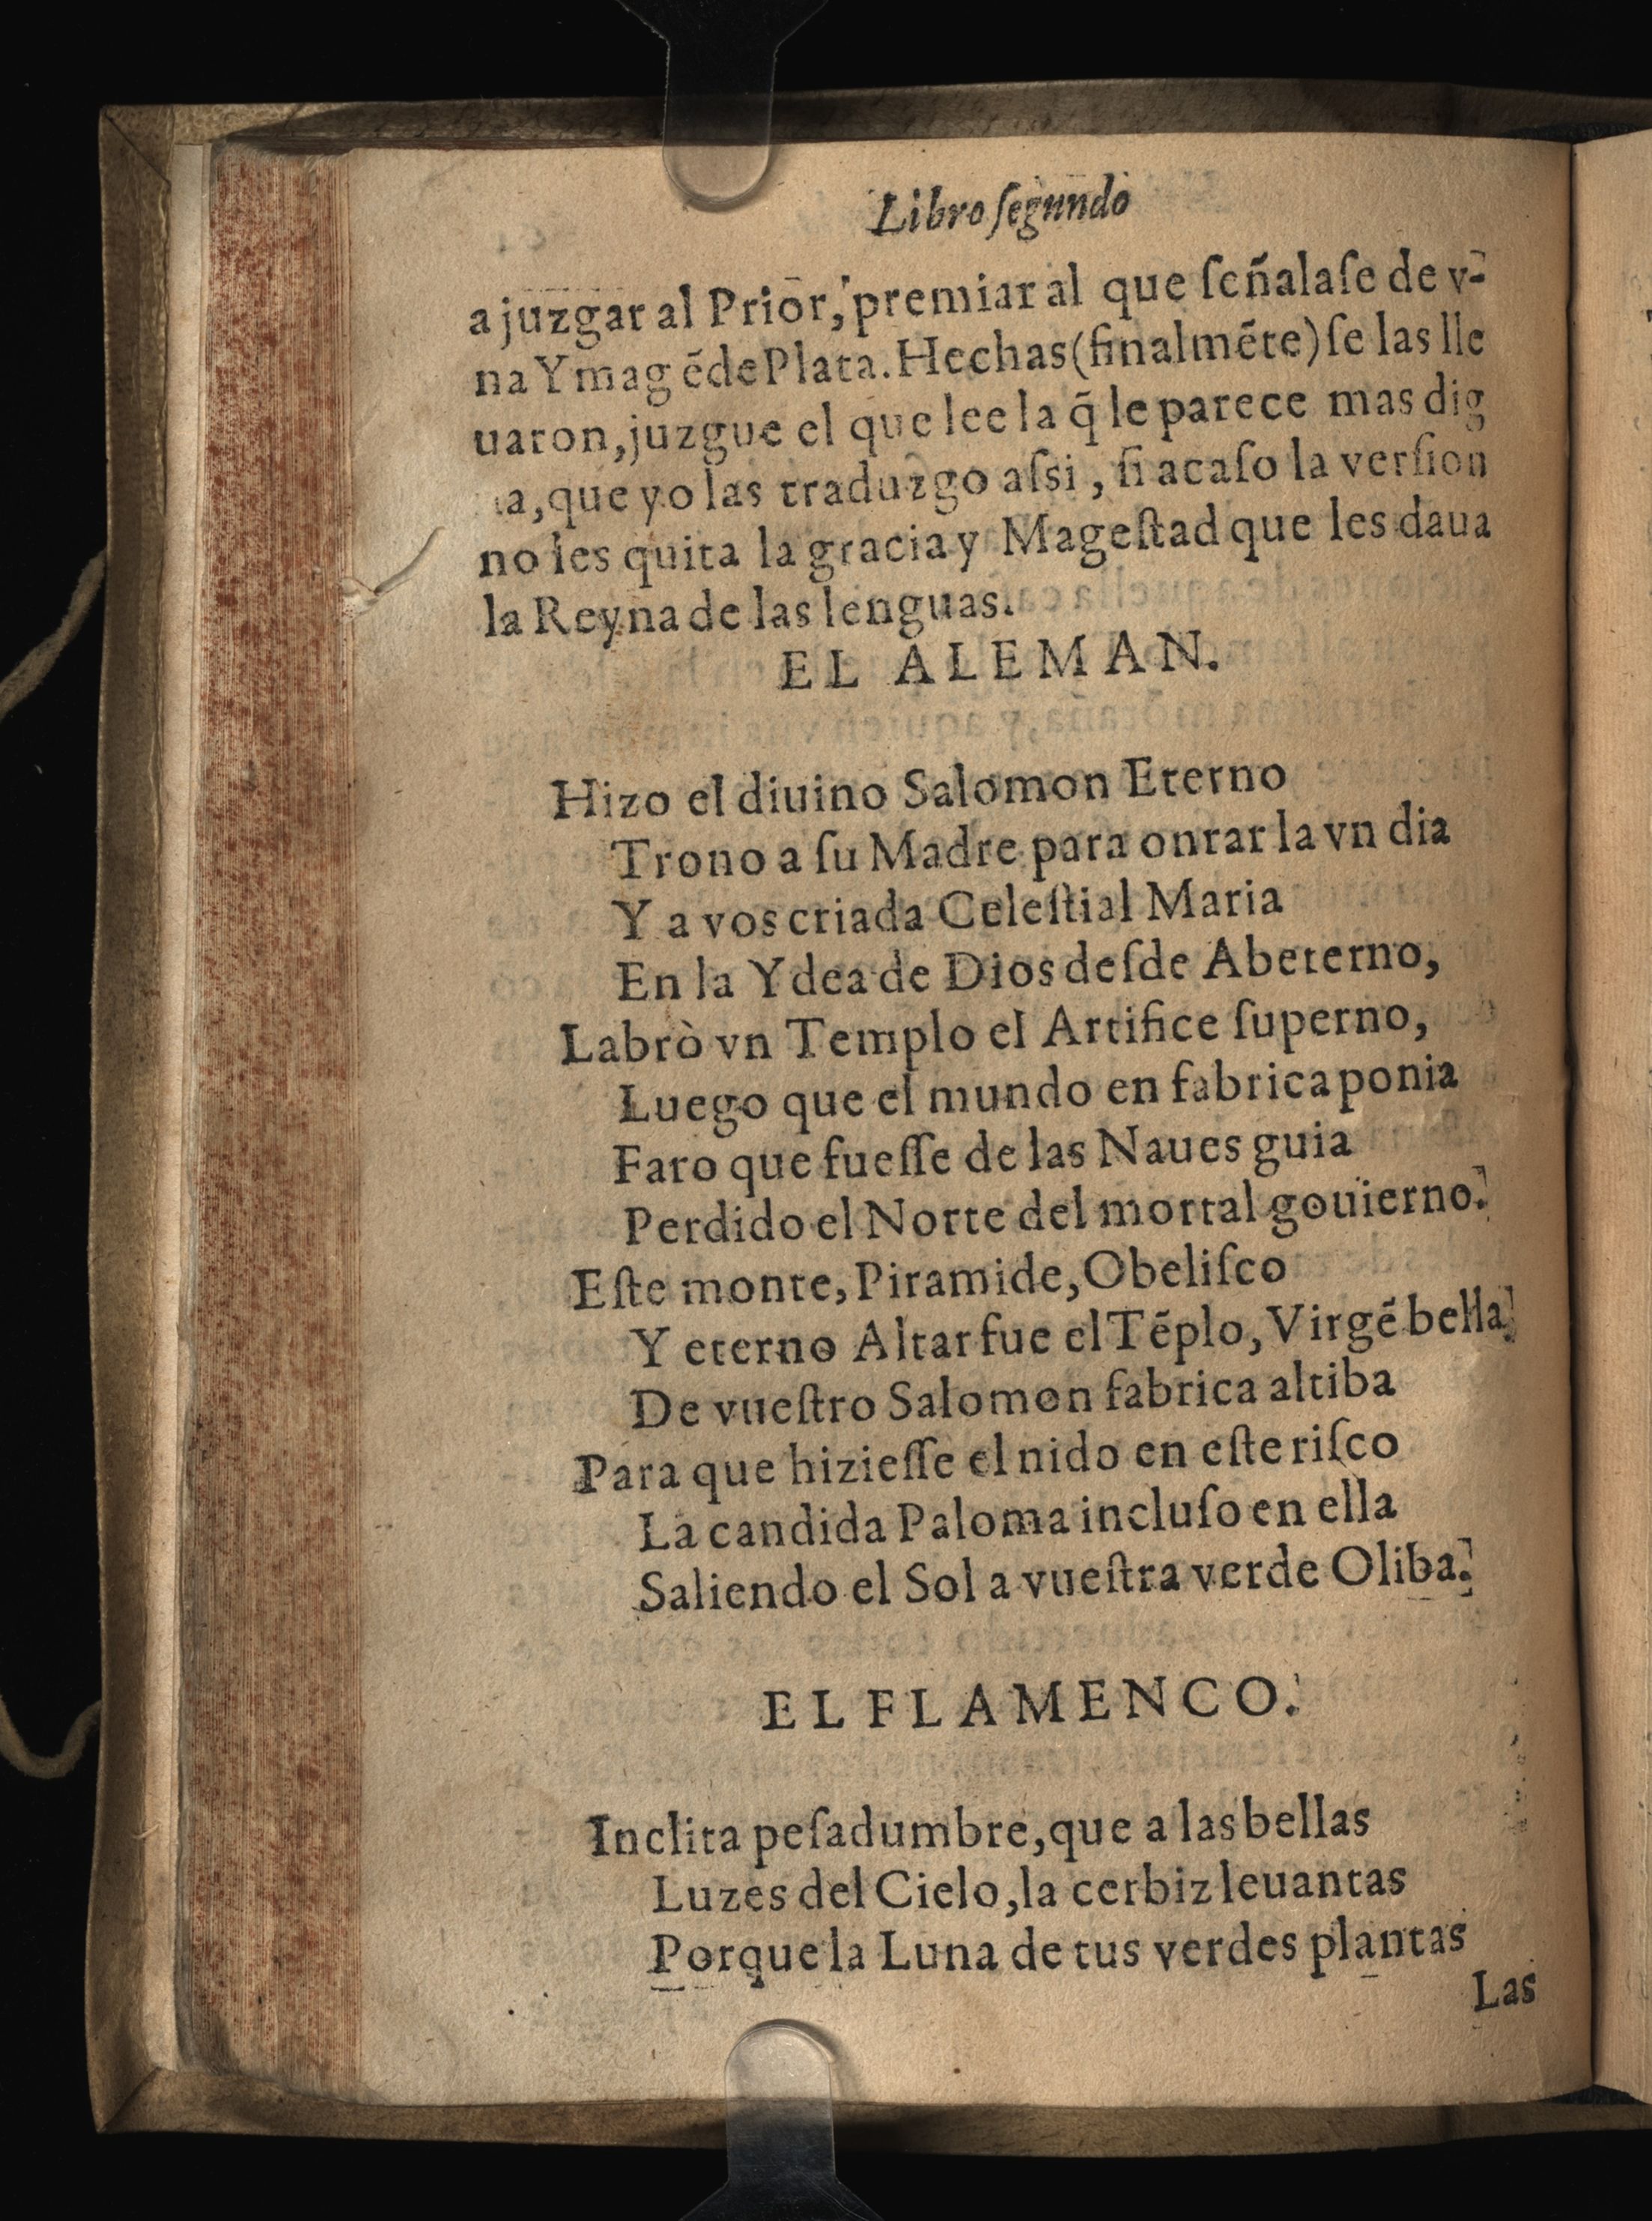 Libro ſegundo
a juzgar al Prior, premiar al que ſeñalaſe de v-
na Ymagẽ de Plata. Hechas (finalmẽte) ſe las lle
uaron, juzgue el que lee la q̃ le parece mas dig
na, que yo las traduzgo aſsi, ſi acaſo la verſion
no les quita la gracia y Mageſtad que les daua
la Reyna de las lenguas.
EL ALEMAN.
Hizo el diuino Salomon Eterno
Trono a ſu Madre para onrar la vn dia
Y a vos criada Celeſtial Maria
En la Ydea de Dios deſde Abeterno,
Labrò vn Templo el Artifice ſuperno,
Luego que el mundo en fabrica ponia
Faro que fueſſe de las Naues guia
Perdido el Norte del mortal gouierno.
Eſte monte, Piramide, Obeliſco
Y eterno Altar fue el Tẽplo, Virgẽ bella
De vueſtro Salomon fabrica altiba
Para que hizieſſe el nido en eſte riſco
La candida Paloma incluſo en ella
Saliendo el Sol a vueſtra verde Oliba.
EL FLAMENCO.
Inclita peſadumbre, que a las bellas
Luzes del Cielo, la cerbiz leuantas
Porque la Luna de tus verdes plantas
Las